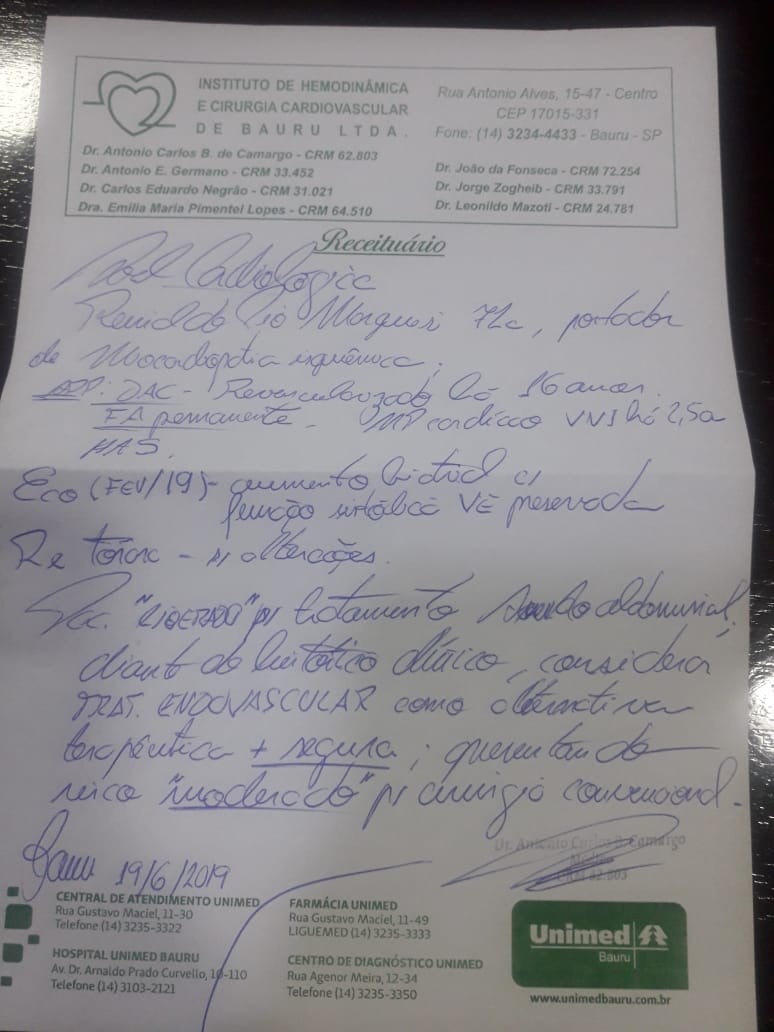 INSTITUTO DE HEMODINÂMICA
E CIRURGIA CARDIOVASCULAR
DE BAURU LTDA.
Rua Antonio Alves, 15-47 - Centro
CEP 17015-331
Fone: (14) 3234-4433 - Bauru - SP
Dr. Antonio Carlos B. de Camargo - CRM 62.803
Dr. Antonio E. Germano - CRM 33.452
Dr. Carlos Eduardo Negrão - CRM 31.021
Dra. Emilia Maria Pimentel Lopes - CRM 64.510
Dr. João da Fonseca - CRM 72.254
Dr. Jorge Zogheib - CRM 33.791
Dr. Leonildo Mazoti - CRM 24.781
Receituário
Cardiologica
72a, portador
de Miocardiopatia isquêmica;
APP: DAC - Revascularizado há 16 anos.
FA permanente - MP cardíaco VVI há 2,5a
HAS.
Eco (FEV/19) - aumento biatrial c/
função sistólica VE preservada
Rx tórax - s/ alterações.
"LIBERADO" p/ tratamento abdominal;
diante do histórico clínico, considera
TRAT. ENDOVASCULAR como alternativa
terapêutica + segura; apresentando
risco "moderado" p/ cirurgia convencional.
Bauru 19/6/2019
Dr. Antonio Carlos B. Camargo
Médico
CRM 62.803
CENTRAL DE ATENDIMENTO UNIMED
Rua Gustavo Maciel, 11-30
Telefone (14) 3235-3322
HOSPITAL UNIMED BAURU
Av. Dr. Arnaldo Prado Curvello, 10-110
Telefone (14) 3103-2121
FARMÁCIA UNIMED
Rua Gustavo Maciel, 11-49
LIGUEMED (14) 3235-3333
CENTRO DE DIAGNÓSTICO UNIMED
Rua Agenor Meira, 12-34
Telefone (14) 3235-3350
Unimed
Bauru
www.unimedbauru.com.br